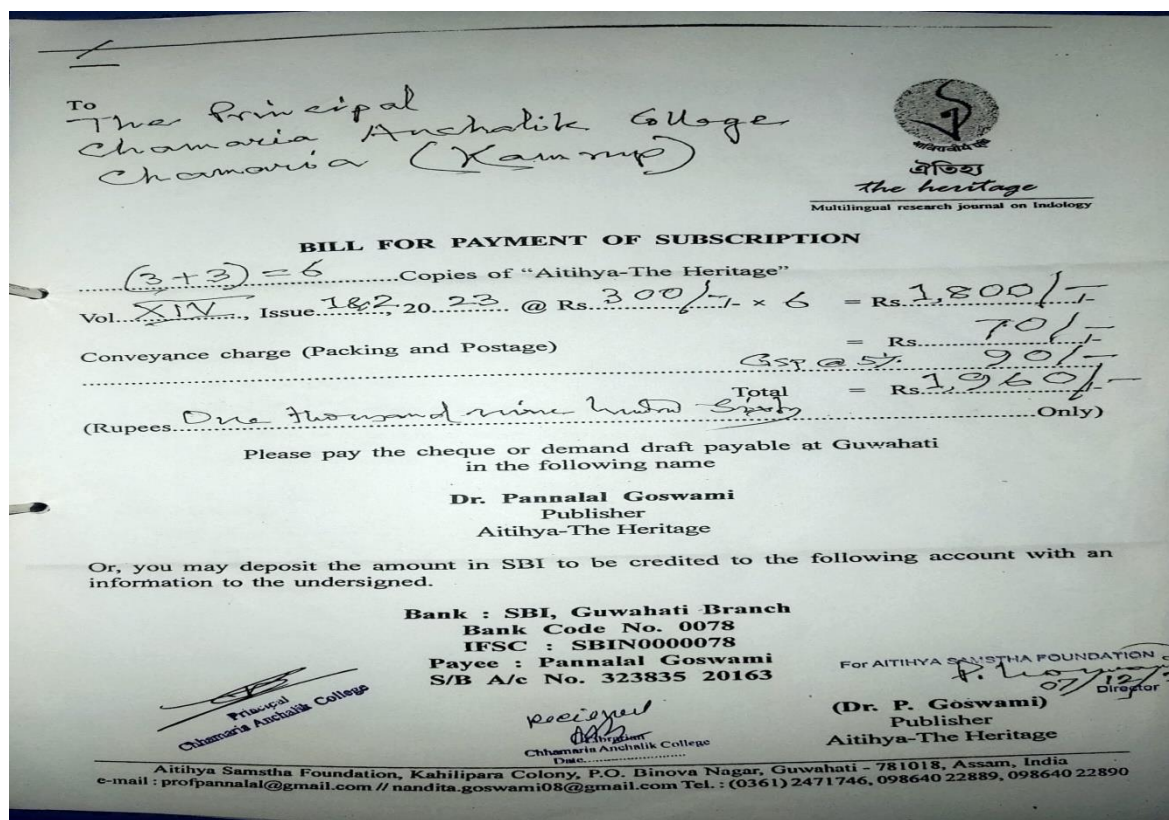 To
The Principal
Chamaria Anchalik College
Chamaria (Kamrup)
ঐতিহ্য
the heritage
Multilingual research journal on Indology
BILL FOR PAYMENT OF SUBSCRIPTION
(3+3) = 6 Copies of “Aitihya-The Heritage”
Vol. XIV, Issue 1&2, 2023 @ Rs. 300/- × 6 = Rs. 1,800/-
Conveyance charge (Packing and Postage) = Rs. 70/-
@ 5% 90/-
Total = Rs. 1,960/-
(Rupees One thousand nine Only)
Please pay the cheque or demand draft payable at Guwahati
in the following name
Dr. Pannalal Goswami
Publisher
Aitihya-The Heritage
Or, you may deposit the amount in SBI to be credited to the following account with an
information to the undersigned.
Bank : SBI, Guwahati Branch
Bank Code No. 0078
IFSC : SBIN0000078
Payee : Pannalal Goswami
S/B A/c No. 323835 20163
Principal
Chhamaria Anchalik College
Received
Librarian
Chhamaria Anchalik College
Date
For AITIHYA SAMSTHA FOUNDATION
07/12/
Director
(Dr. P. Goswami)
Publisher
Aitihya-The Heritage
Aitihya Samstha Foundation, Kahilipara Colony, P.O. Binova Nagar, Guwahati - 781018, Assam, India
e-mail : profpannalal@gmail.com // nandita.goswami08@gmail.com Tel. : (0361) 2471746, 098640 22889, 098640 22890